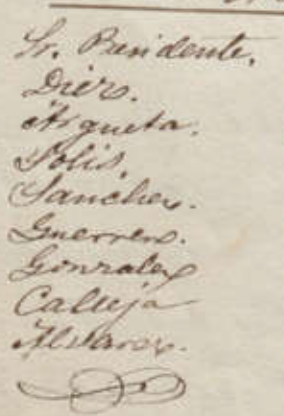 Sr. Presidente.
Diez.
Argueta.
Solis.
Sanchez.
Guerrero.
Gonzalez
Calleja
Alvarez.